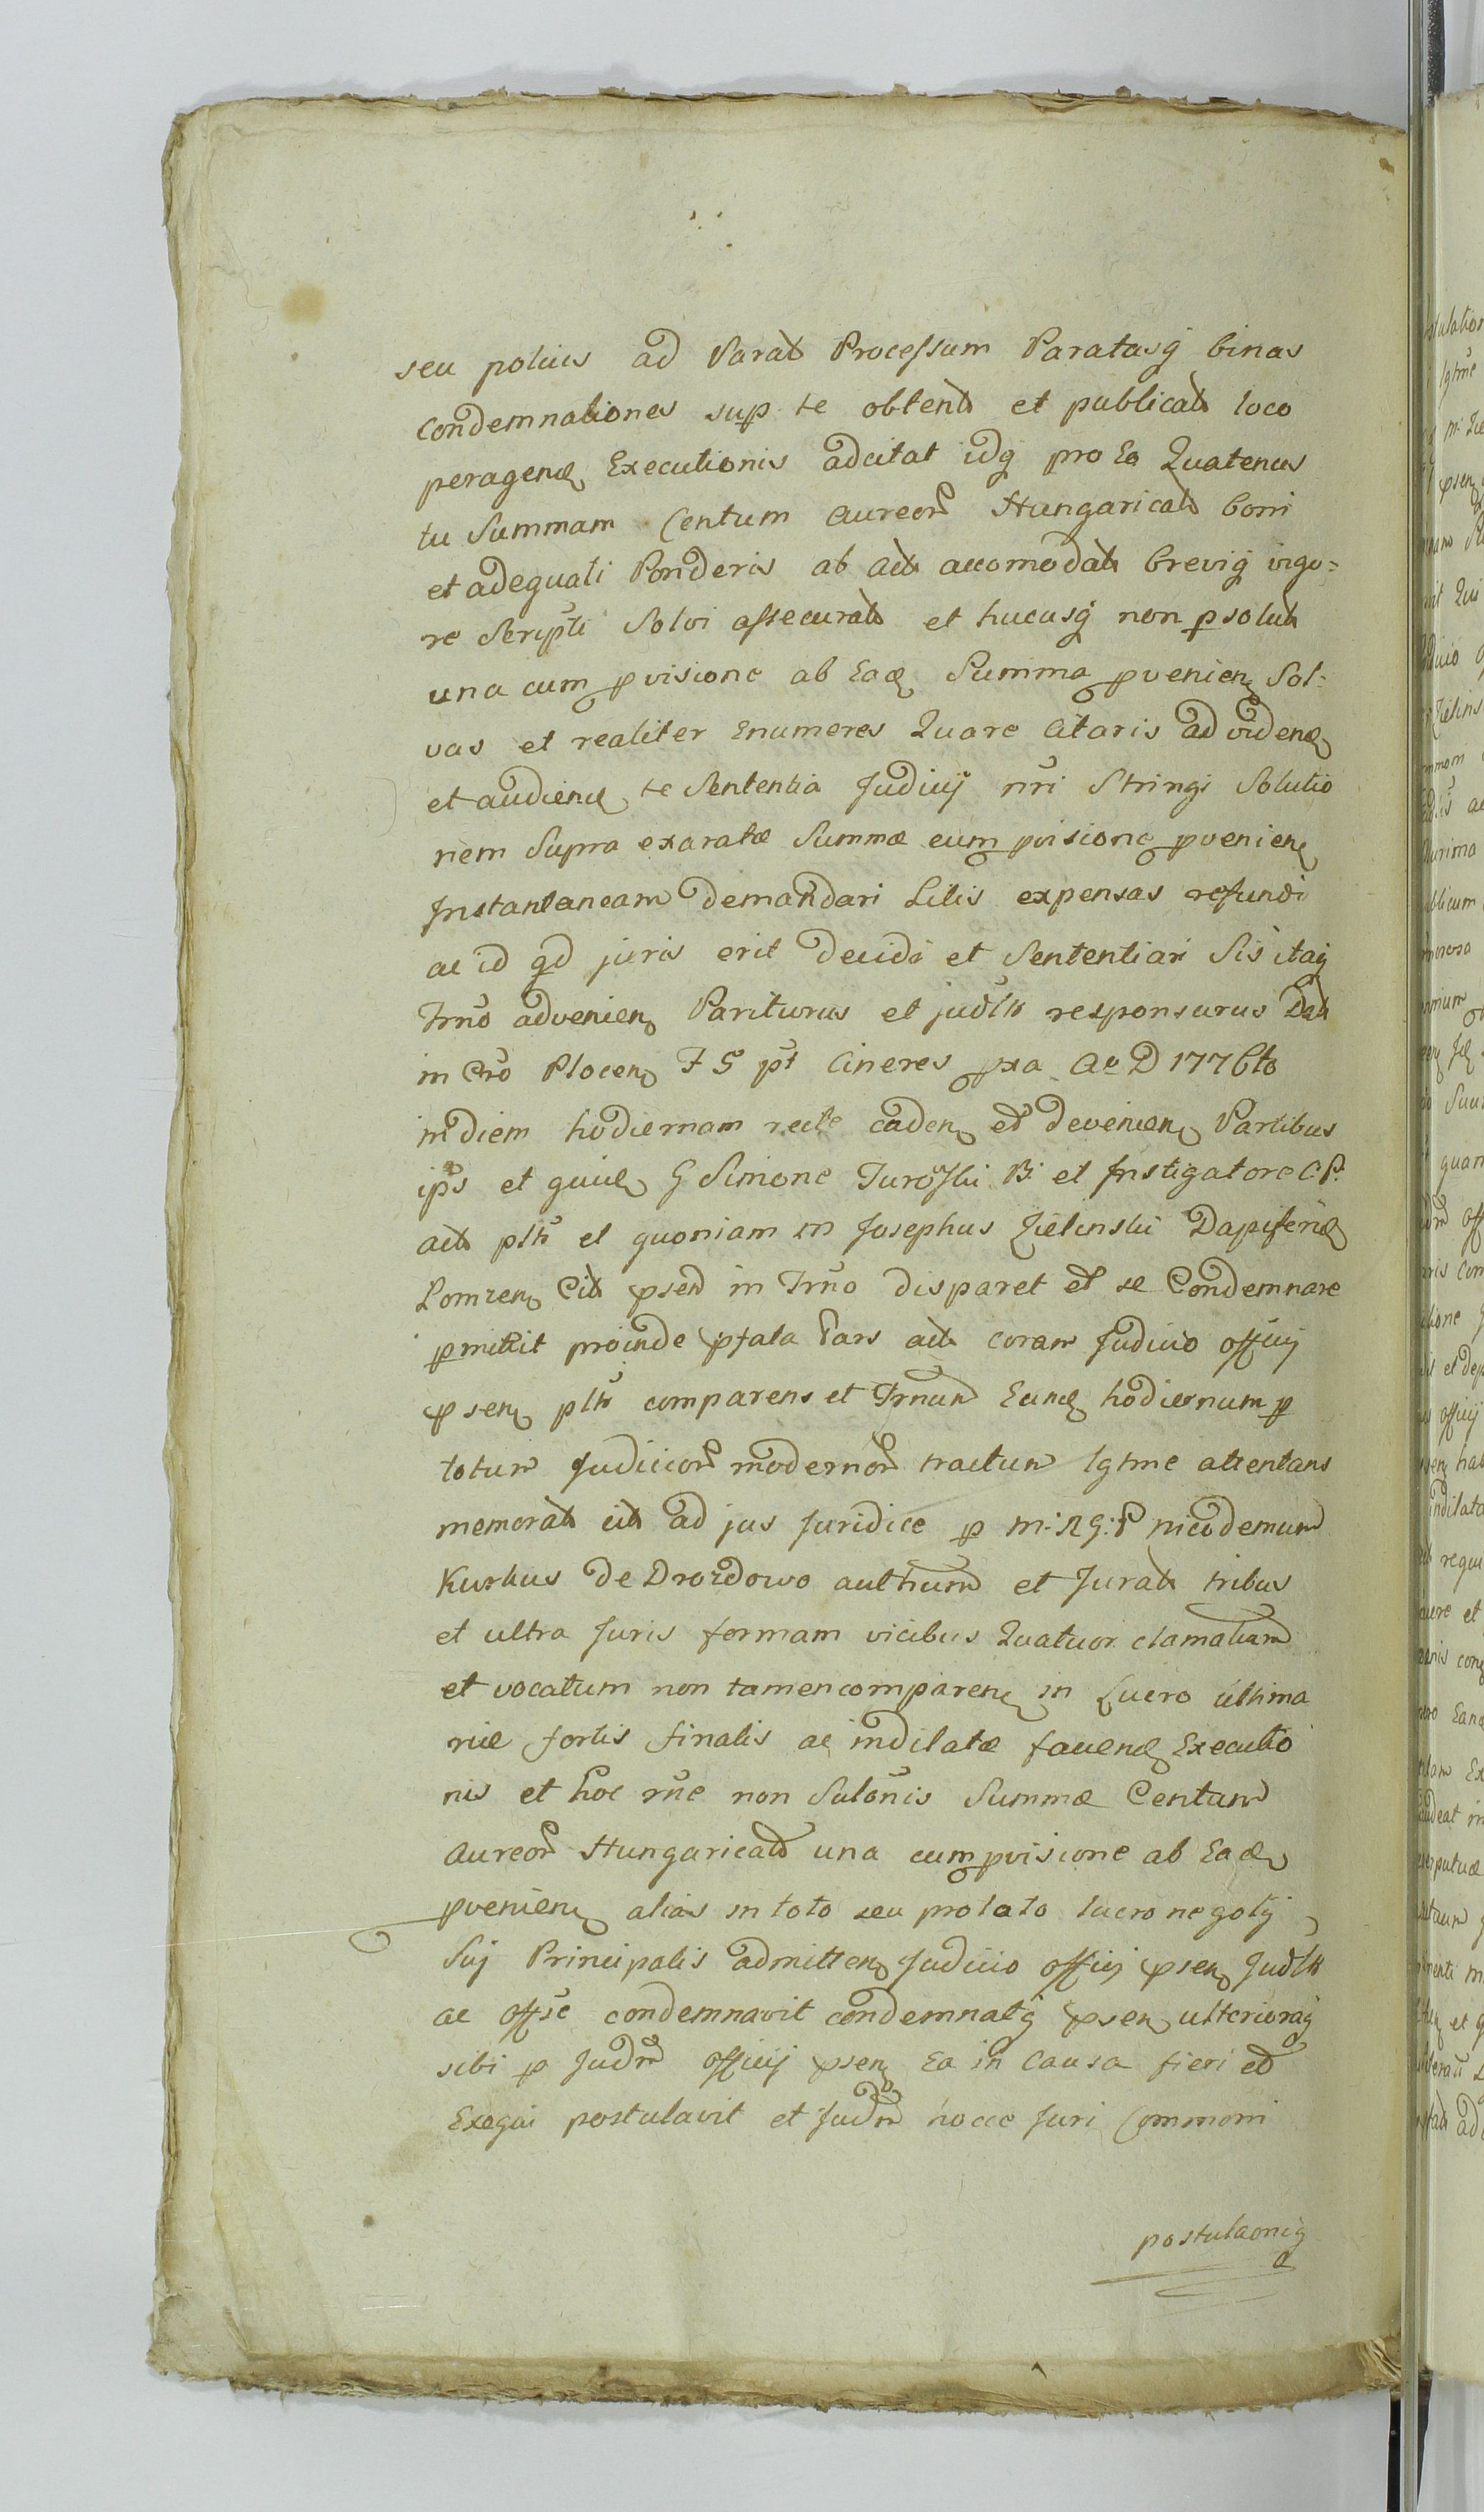 seu potius ad Parat Processum Paratasq binas
condemnationes sup te obtent et publicat loco
peragend Executionis adcitat idq pro Eo Quatenus
tu Summam Centum aureor Hungarical boni
et adequati Ponderis ab act accomodat brevig vigo=
re Scripti Solvi assecurat et hucusq non psolut
una cum pvisione ab Ead Summa pvenien Sol=
vas et realiter Enumeres Quare Citaris ad vidend
et audiend te Sententia Judicij nri Stringi Solutio
nem Supra exaratæ Summæ cum pvisione pvenien
Instantaneam demandari Litis expensas refundi
ac id qd juris erit decidi et Sententiari Sis itaq
Trno advenien Pariturus et judlr responsurus Dat
in Cro Plocen F 5 pt Cineres pxa Ao D 1776to
in diem hodiernam recte caden et devenien Partibus
ips et quid G Simone Turoski B: et Instigatore C.P.
act pltr et quoniam M Josephus Zielinski Dapiferid
Lomzen Cit psend in Trno disparet et se Condemnare
pmittit proinde pfata Pars act coram Judicio officij
psen pltr comparens et Trnum Eund hodiernum p
totum Judicior modernor tractum lgtme attentans
memorat cit ad jus Juridice p M: R G: P nicodemum
Kurkus de Drozdowo authum et Jurat tribus
et ultra Juris formam vicibus Quatuor clamatum
et vocatum non tamen comparen in Lucro ultima
rie fortis finalis ac indilatæ favend Executio
nis et hoc rne non Solonis Summæ Centum
Aureor Hungaricad una cum pvisione ab Ead
pvenien alias in toto seu protato lucro negotij
Suj Principalis admitten Judicio officij psen Judlr
ac offse condemnavit condemnatq psen ulterioraq
sibi p Judm officij psen Ea in Causa fieri et
Exequi postulavit et Judm hocce Juri Commoni
postulaonig